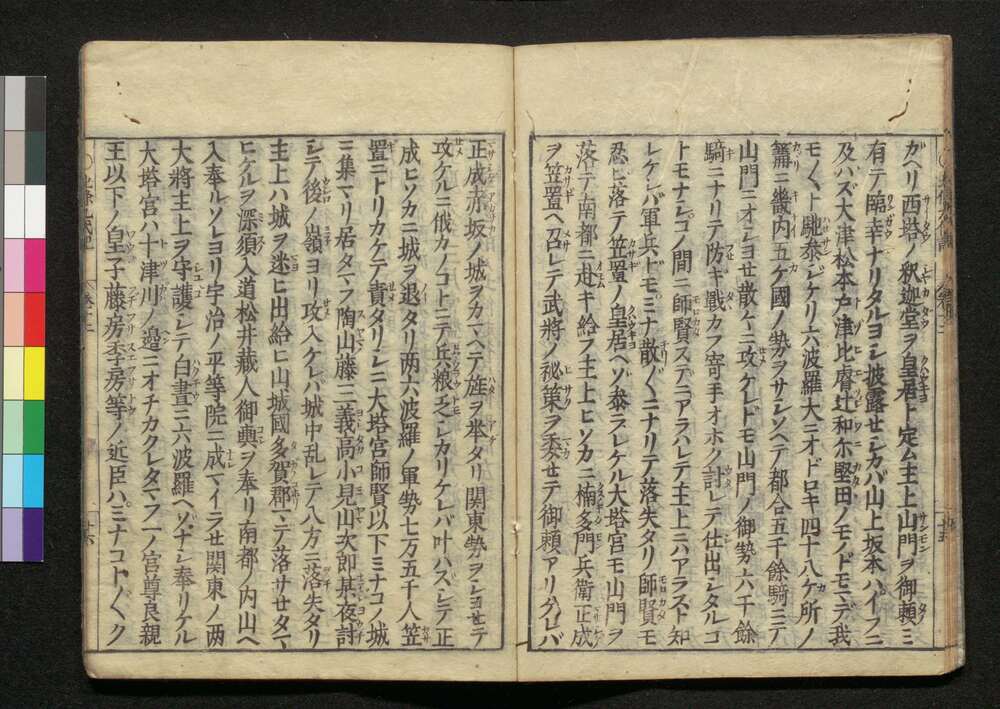 ガヘリ西塔ノ釈迦堂ヲ皇居ト定ム主上山門ヲ御頼ミ
有テ臨幸ナリタルヨシ披露セシカバ山上坂本ハイフニ
及ハズ大津松本戸津比叡辻和尓堅田ノモノドモマデ我
モ〱ト馳参ジケリ六波羅大ニオドロキ四十八ケ所ノ
篝ニ畿内五ケ國ノ勢ヲサシソヘテ都合五千餘騎ニテ
山門ニオシヨセ散々ニ攻ケレドモ山門ノ御勢六千餘
騎ニナリテ防ギ戰カフ寄手オホク討レテ仕出シタルコ
トモナシコノ間ニ師賢ステニアラハレテ主上ニハアラスト知
レケレバ軍兵ドモミナ散〲ニナリテ落失タリ師賢モ
忍ヒ落テ笠置ノ皇居ヘゾ参ラレケル大塔宮モ山門ヲ
落テ南都ニ赴キ給フ主上ヒソカニ楠多門兵衛正成
ヲ笠置ヘ召レテ武將ノ秘策ヲ委セテ御頼アリケレバ
正成赤坂ノ城ヲカマヘテ旌ヲ挙タリ関東勢ヲシヨセテ
攻ケルニ俄カノコトニテ兵粮乏シカリケレバ叶ハズシテ正
成ヒソカニ城ヲ退タリ両六波羅ノ軍勢七万五千人笠
置ニトリカケテ責タリシニ大塔宮師賢以下ミナコノ城
ニ集マリ居タマフ陶山藤三義高小見山次郎某夜討
シテ後ノ嶺ヨリ攻入ケレバ城中乱レテ八方ニ落失タリ
主上ハ城ヲ迷ヒ出給ヒ山城國多賀郡マデ落サセタマ
ヒケルヲ深須入道松井蔵人御輿ヲ奉リ南都ノ内山ヘ
入奉ルソレヨリ宇治ノ平等院ニ成マイラセ関東ノ両
大將主上ヲ守護シテ白晝ニ六波羅ヘソナシ奉リケル
大塔宮ハ十津川ノ邊ニオチカクレタマフ一ノ宮尊良親
王以下ノ皇子藤房季房等ノ近臣ハミナコト〲ク